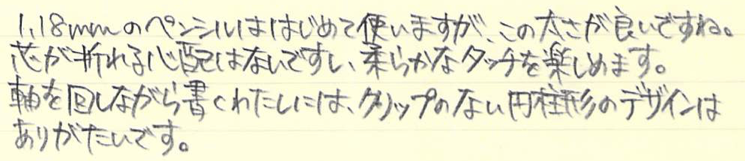 1.18mmのペンシルははじめて使いますが、この太さが良いですね。
芯が折れる心配はないですし、柔らかなタッチを楽しめます。
軸を回しながら書くわたしには、グリップのない円柱形のデザインは
ありがたいです。